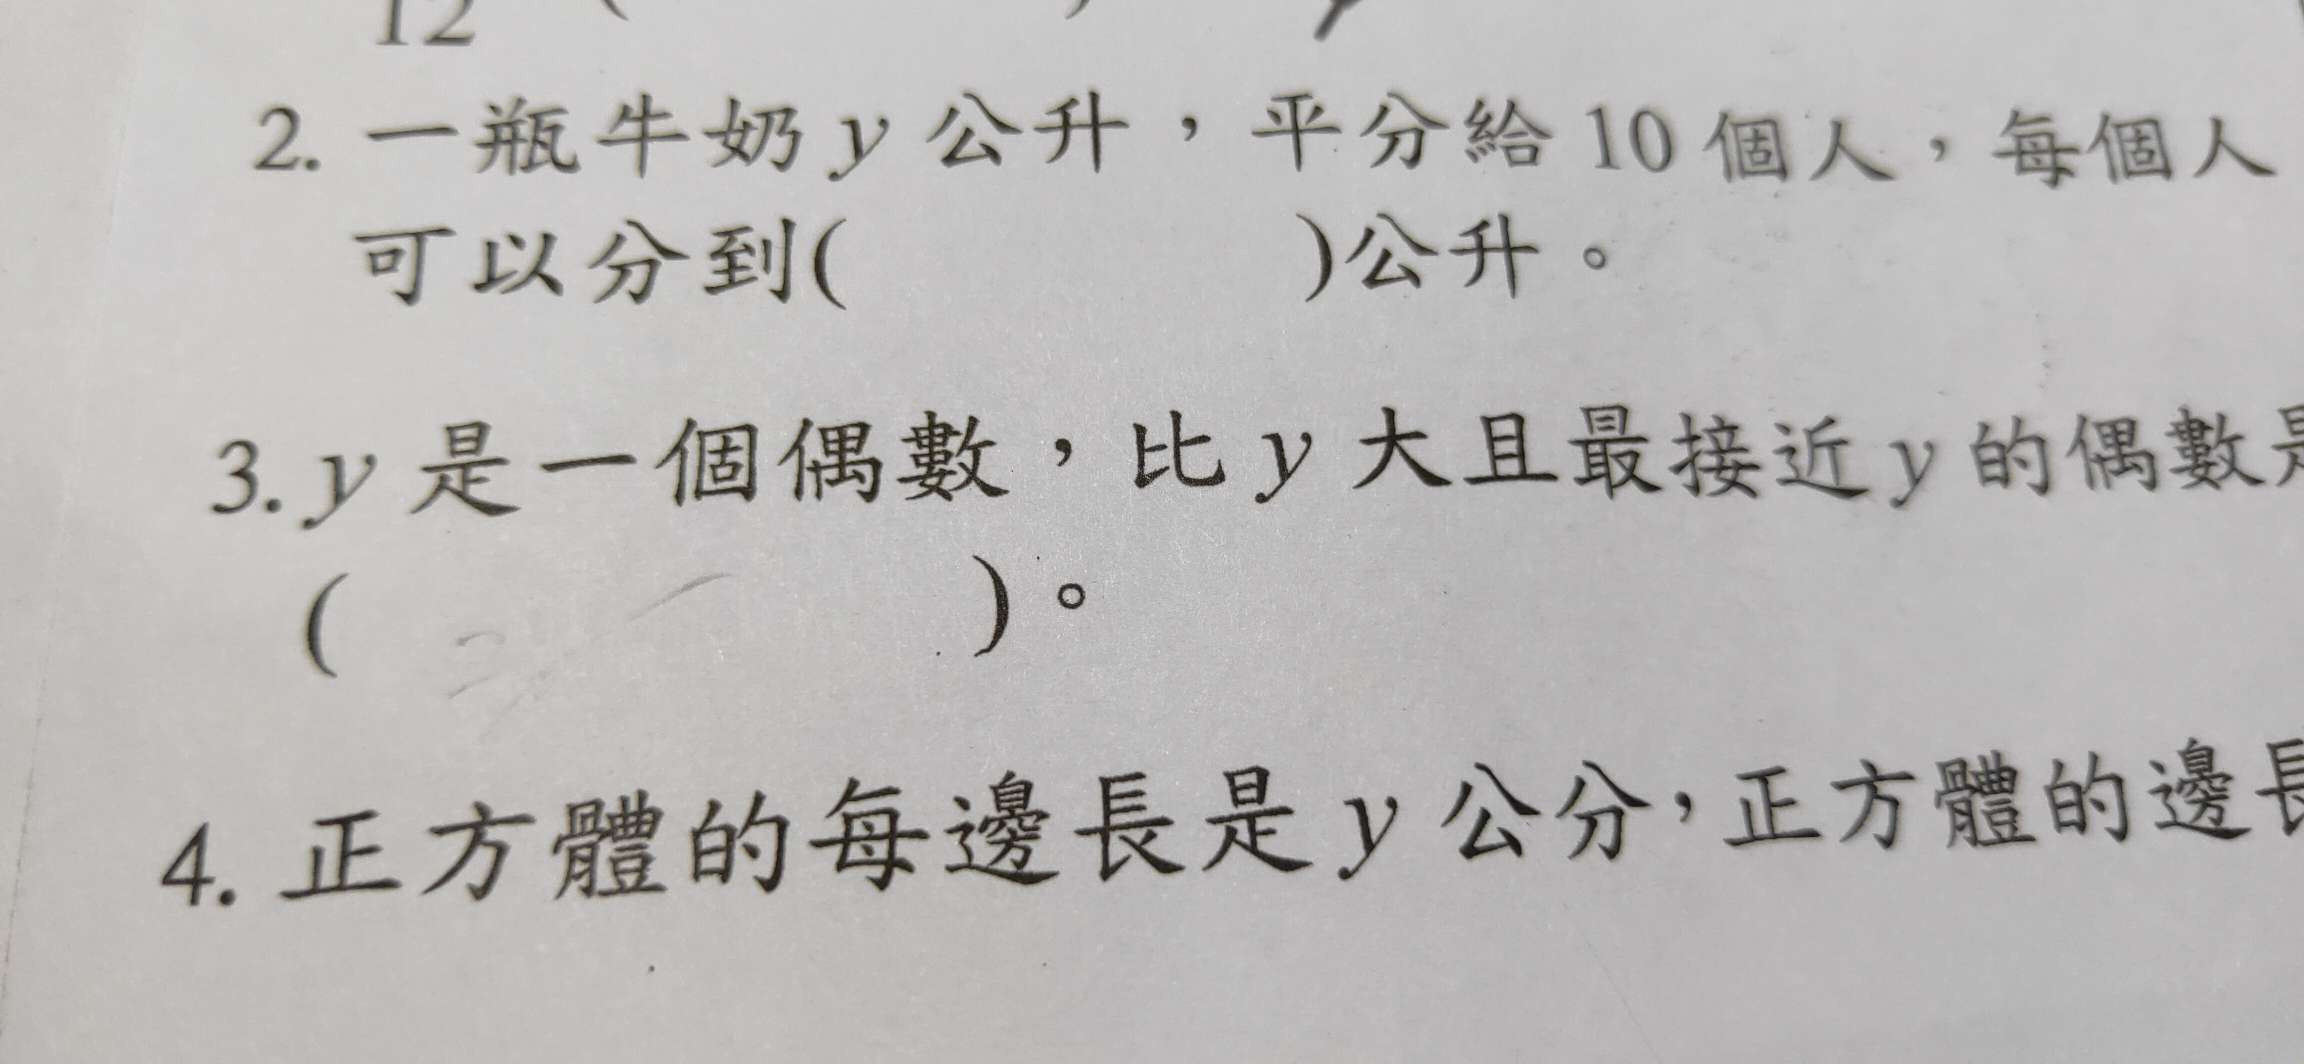 12
2. 一瓶牛奶 y 公升，平分給 10 個人，每個人
可以分到(                    )公升。
3. y 是一個偶數，比 y 大且最接近 y 的偶數是
(                    )。
4. 正方體的每邊長是 y 公分，正方體的邊長